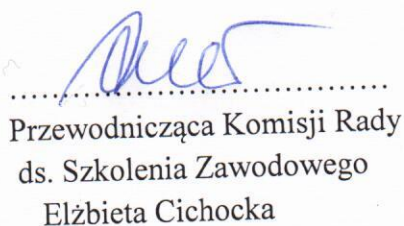 ....................................
Przewodnicząca Komisji Rady
ds. Szkolenia Zawodowego
Elżbieta Cichocka